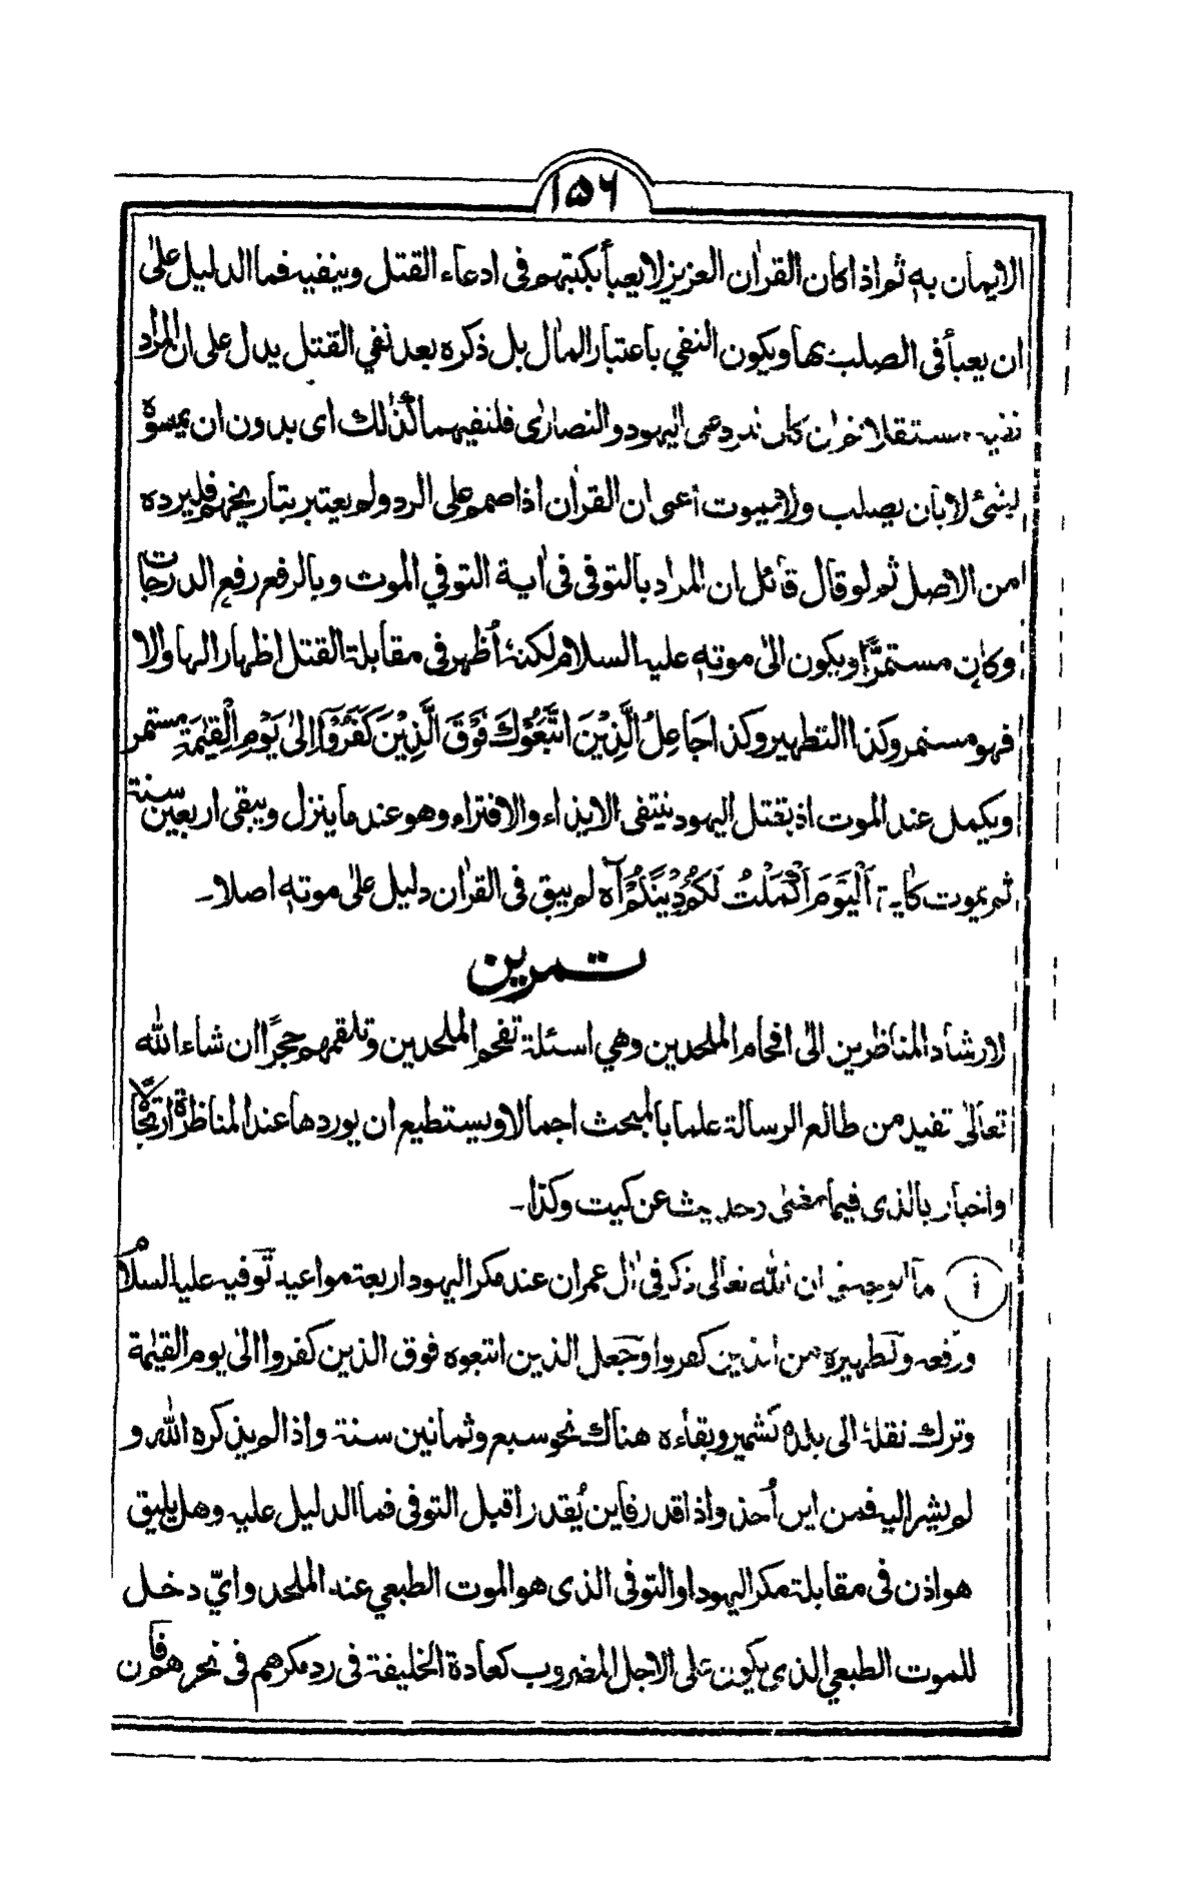 ١٥٦
الايمان به ثم اذا كان القرأن العزيز لا يعبأ بكبتهم فى ادعاء القتل وينفيه فما الدليل على
ان يعبأ فى الصلب بها ويكون النفي باعتبار المأل بل ذكره بعد نفي القتل يدل على ان المراد
نفيه مستقلا نردعى اليهود والنصارى فلنفيهما كذلك اى بدون ان يمسوه
لشئ لا بأن يصلب ولا يموت اعنى ان القرأن اذا صمم على الرد ولم يعتبر بتاريخهم فليرده
من الاصل ثم لو قال قائل ان المراد بالتوفى فى أية التوفي الموت وبالرفع رفع الدرجات
وكان مستمرًّا ويكون الى موته عليه السلام لكنه أظهر فى مقابلة القتل اظهارا لها والا
فهو مستمر وكذا التطهير وكذا جَاعِلُ الَّذِيْنَ اتَّبَعُوْكَ فَوْقَ الَّذِيْنَ كَفَرُوْآ اِلىٰ يَوْمِ الْقِيٰمَةِ مستمر
ويكمل عند الموت اذ بقتل اليهود ينتفى الايذاء والافتراء وهو عند ما ينزل ويبقى اربعين سنة
ثم يموت كأية اَلْيَوْمَ اَكْمَلْتُ لَكُمْ دِيْنَكُمْ اه لم يبق فى القرأن دليل على موته اصلا۔
تمرين
لارشاد المناظرين الى افحام الملحدين وهي اسئلة تفحم الملحدين وتلقمهم حجرًا ان شاء الله
تعالى تفيد من طالع الرسالة علما بالمبحث اجمالا ويستطيع ان يوردها عند المناظرة ارتجالا
واخبار بالذى فيما مضى وحديث عن كيت وكذا۔
١ ما الوجه فى ان الله تعالى ذكر فى أل عمران عند مكر اليهود اربعة مواعيد توفيه عليه السلام
ورفعه وتطهيره من الذين كفروا وجعل الذين اتبعوه فوق الذين كفروا الى يوم القيٰمة
وترك نقله الى بلدة كشمير وبقاءه هناك نحو سبع وثمانين سنة واذا لم يذكره الله و
لم يشر اليه فمن اين أخذ واذا قدر فاين يُقدر أقبل التوفى فما الدليل عليه وهل يليق
هو اذن فى مقابلة مكر اليهود او التوفى الذى هو الموت الطبعي عند الملحد وايّ دخل
للموت الطبعي الذى يكون على الاجل المضروب كعادة الخليفة فى رد مكرهم فى نحرهم فأن